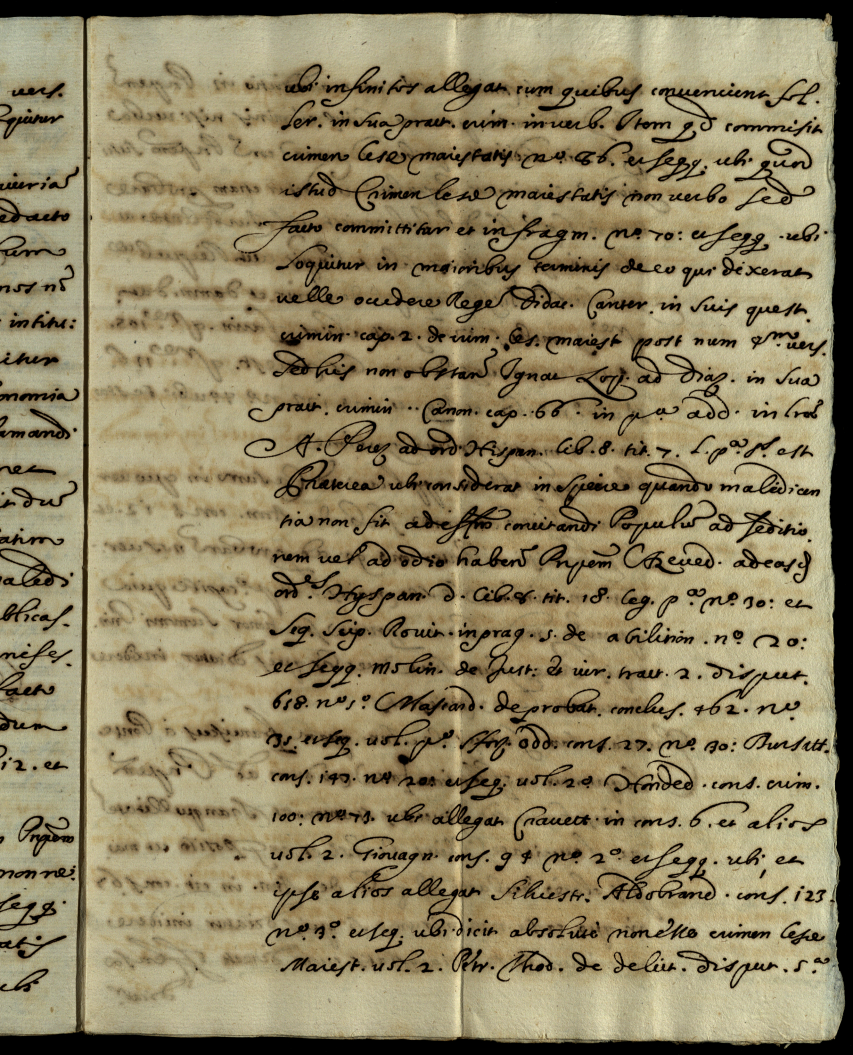 vers.
equitur
ediacto
hum
mos nõ
intitu:
citur
onomia
amandi
net
it dũ
maledi
ublicas.
facto
dum
12. et
Prĩpem
non ne:
segg.
atis
ubi
ubi infinitos allegat cum quibus conveniunt fol.
ser. in sua prat. crim. in verb. Item qd commisit
crimen lese maiestatis nº 86. et segg. ubi quod
istud Crimen lese maiestatis non verbo sed
facto committitur et in fragm. nº 70: et segg. ubi
loquitur in maioribus terminis de eo qui dixerat
velle occidere Rege Didac. Canter. in suis quest.
crimin. cap. 2. de crim. les. maiest. post num 4m vers.
Sed his non obstan Ignat. Lop. ad Diaz. in sua
prat. crimin. Canon. cap. 66. in pª add. in
A. Perez ad ord Hispan. lib. 8. tit. 7. l. pª est
Praterea ubi considerat in specie quando maledicen
tia non sit ad effm concitandi Populũ ad seditio
nem vel ad odio haben Prĩpem Azeved. ad eas
ord. Hyspan. d. lib. 8. tit. 18. leg. pª nº 30: et
seq. Scip. Rovit. in prag. 5. de abilition. nº 20:
et segg. molin. de Just: et iur. tract. 2. disput.
658. nº 5º Mascard. de probat. conclus. 462. nº
35. et seq. vol. pº Sfor. Odd. cons. 27. nº 30: Bursatt.
cons. 147. nº 20: et seq. vol. 2º Honded. cons. crim.
100: nº 73. ubi allegat Cravett. in cons. 6. et alios
vol. 2. Giovagn. cons. 94 nº 2º et segg. ubi et
ipse alios allegat Silvestr. Aldobrand. cons. 123
nº 3º et seq. ubi dicit absolute non esse crimen lese
Maiest. vol. 2. Petr. Thod. de delict. disput. 5.ª